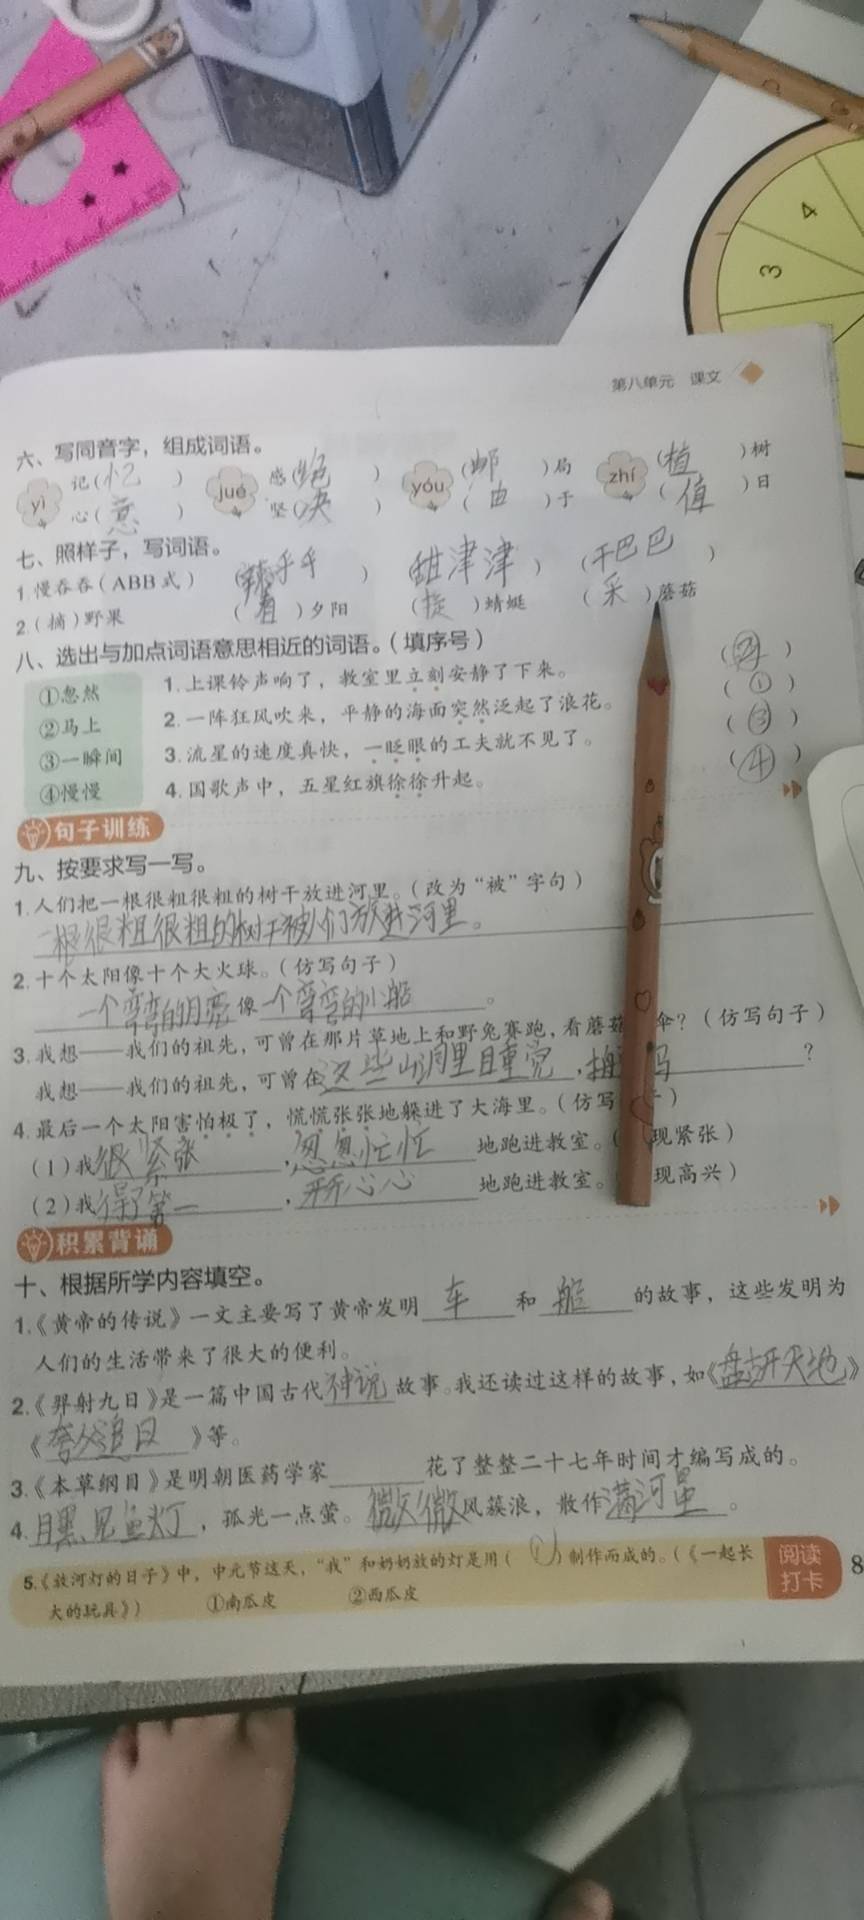 4
3
第八单元 课文
六、写同音字，组成词语。
yì 记(忆) jué 感(绝) yóu (邮)局 zhí (植)树
心(意) 坚(决) (由)于 (值)日
七、照样子，写词语。
1.慢吞吞(ABB式) (辣乎乎) (甜津津) (干巴巴)
2.(摘)野果 (看)夕阳 (捉)蜻蜓 (采)蘑菇
八、选出与加点词语意思相近的词语。(填序号)
①忽然 1.上课铃声响了，教室里立刻安静了下来。 (②)
②马上 2.一阵狂风吹来，平静的海面突然泛起了浪花。 (①)
③一瞬间 3.流星的速度真快，一眨眼的工夫就不见了。 (③)
④慢慢 4.国歌声中，五星红旗徐徐升起。 (④)
句子训练
九、按要求写一写。
1.人们把一根很粗很粗的树干放进河里。(改为“被”字句)
一根很粗很粗的树干被人们放进河里。
2.十个太阳像十个大火球。(仿写句子)
一个弯弯的月亮像一个弯弯的小船。
3.我想——我们的祖先，可曾在那片草地上和野兔赛跑，看蘑菇 伞？(仿写句子)
我想——我们的祖先，可曾在这些山洞里睡觉， 吗？
4.最后一个太阳害怕极了，慌慌张张地躲进了大海里。(仿写 子)
(1)我很紧张，忽忽忙忙地跑进教室。( 现紧张)
(2)我得了第一，开心心地跑进教室。 现高兴)
积累背诵
十、根据所学内容填空。
1.《黄帝的传说》一文主要写了黄帝发明车和船的故事，这些发明为
人们的生活带来了很大的便利。
2.《羿射九日》是一篇中国古代神说故事。我还读过这样的故事，如《盘古开天地》
《夸父追日》等。
3.《本草纲目》是明朝医药学家 花了整整二十七年时间才编写成的。
4.月黑见鱼灯，孤光一点萤。微微风簇浪，散作满河星。
5.《放河灯的日子》中，中元节这天，“我”和奶奶放的灯是用(①)制作而成的。(《一起长
大的玩具》) ①南瓜皮 ②西瓜皮
阅读
打卡
8